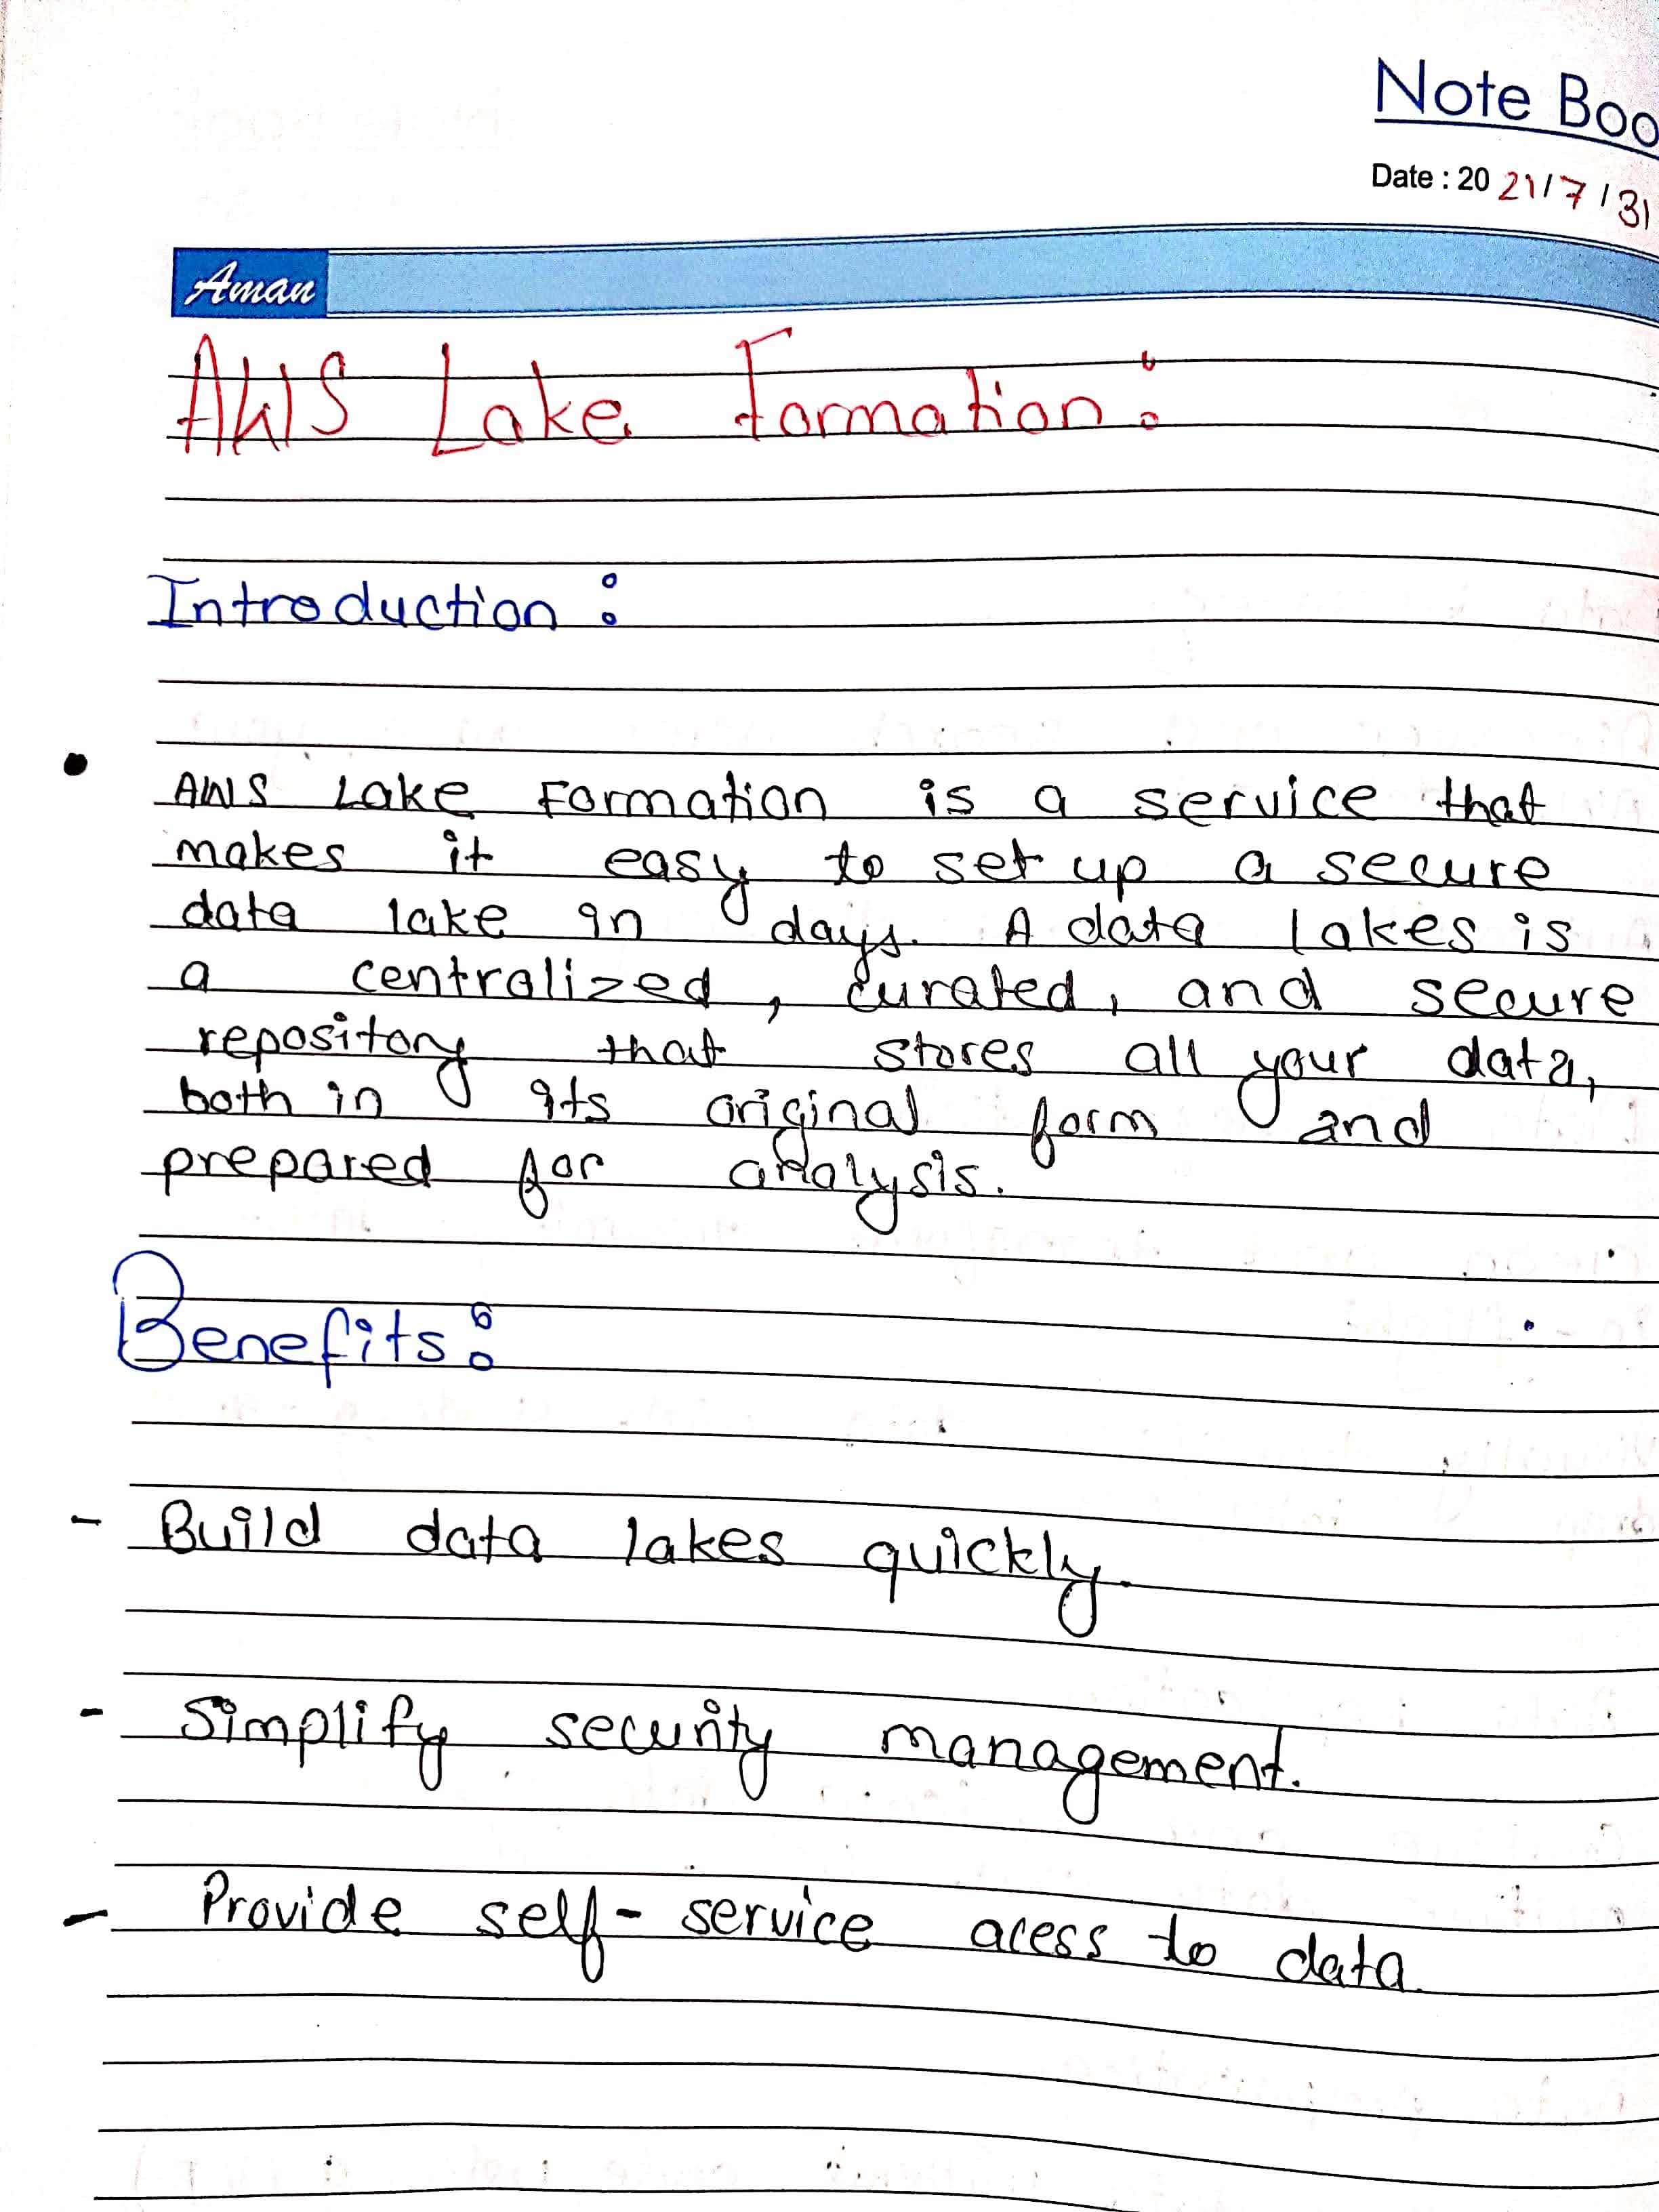 Note Boo
Date : 20 21/7/31
Aman
AWS Lake Formation:
Introduction:
• AWS Lake Formation is a service that
makes it easy to set up a secure
data lake in days. A data lakes is
a centralized, curated, and secure
repository that stores all your data,
both in its original form and
prepared for analysis.
Benefits:
- Build data lakes quickly.
- Simplify security management.
- Provide self-service acess to data.